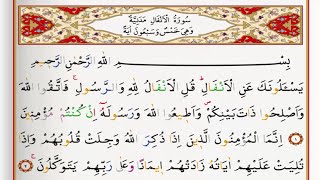 سُورَةُ الْاَنْفَالِ مَدَنِيَّةٌ
وَهِيَ خَمْسٌ وَسَبْعُونَ اٰيَةً
بِسْــــــمِ اللّٰهِ الرَّحْمٰنِ الرَّحٖيمِ
يَسْـَٔلُونَكَ عَنِ الْاَنْفَالِ قُلِ الْاَنْفَالُ لِلّٰهِ وَالرَّسُولِ فَاتَّقُوا اللّٰهَ
وَاَصْلِحُوا ذَاتَ بَيْنِكُمْ وَاَطٖيعُوا اللّٰهَ وَرَسُولَهُٓ اِنْ كُنْتُمْ مُؤْمِنٖينَ
﴿١﴾ اِنَّمَا الْمُؤْمِنُونَ الَّذٖينَ اِذَا ذُكِرَ اللّٰهُ وَجِلَتْ قُلُوبُهُمْ وَاِذَا
تُلِيَتْ عَلَيْهِمْ اٰيَاتُهُ زَادَتْهُمْ اٖيمَانًا وَعَلٰى رَبِّهِمْ يَتَوَكَّلُونَ ﴿٢﴾